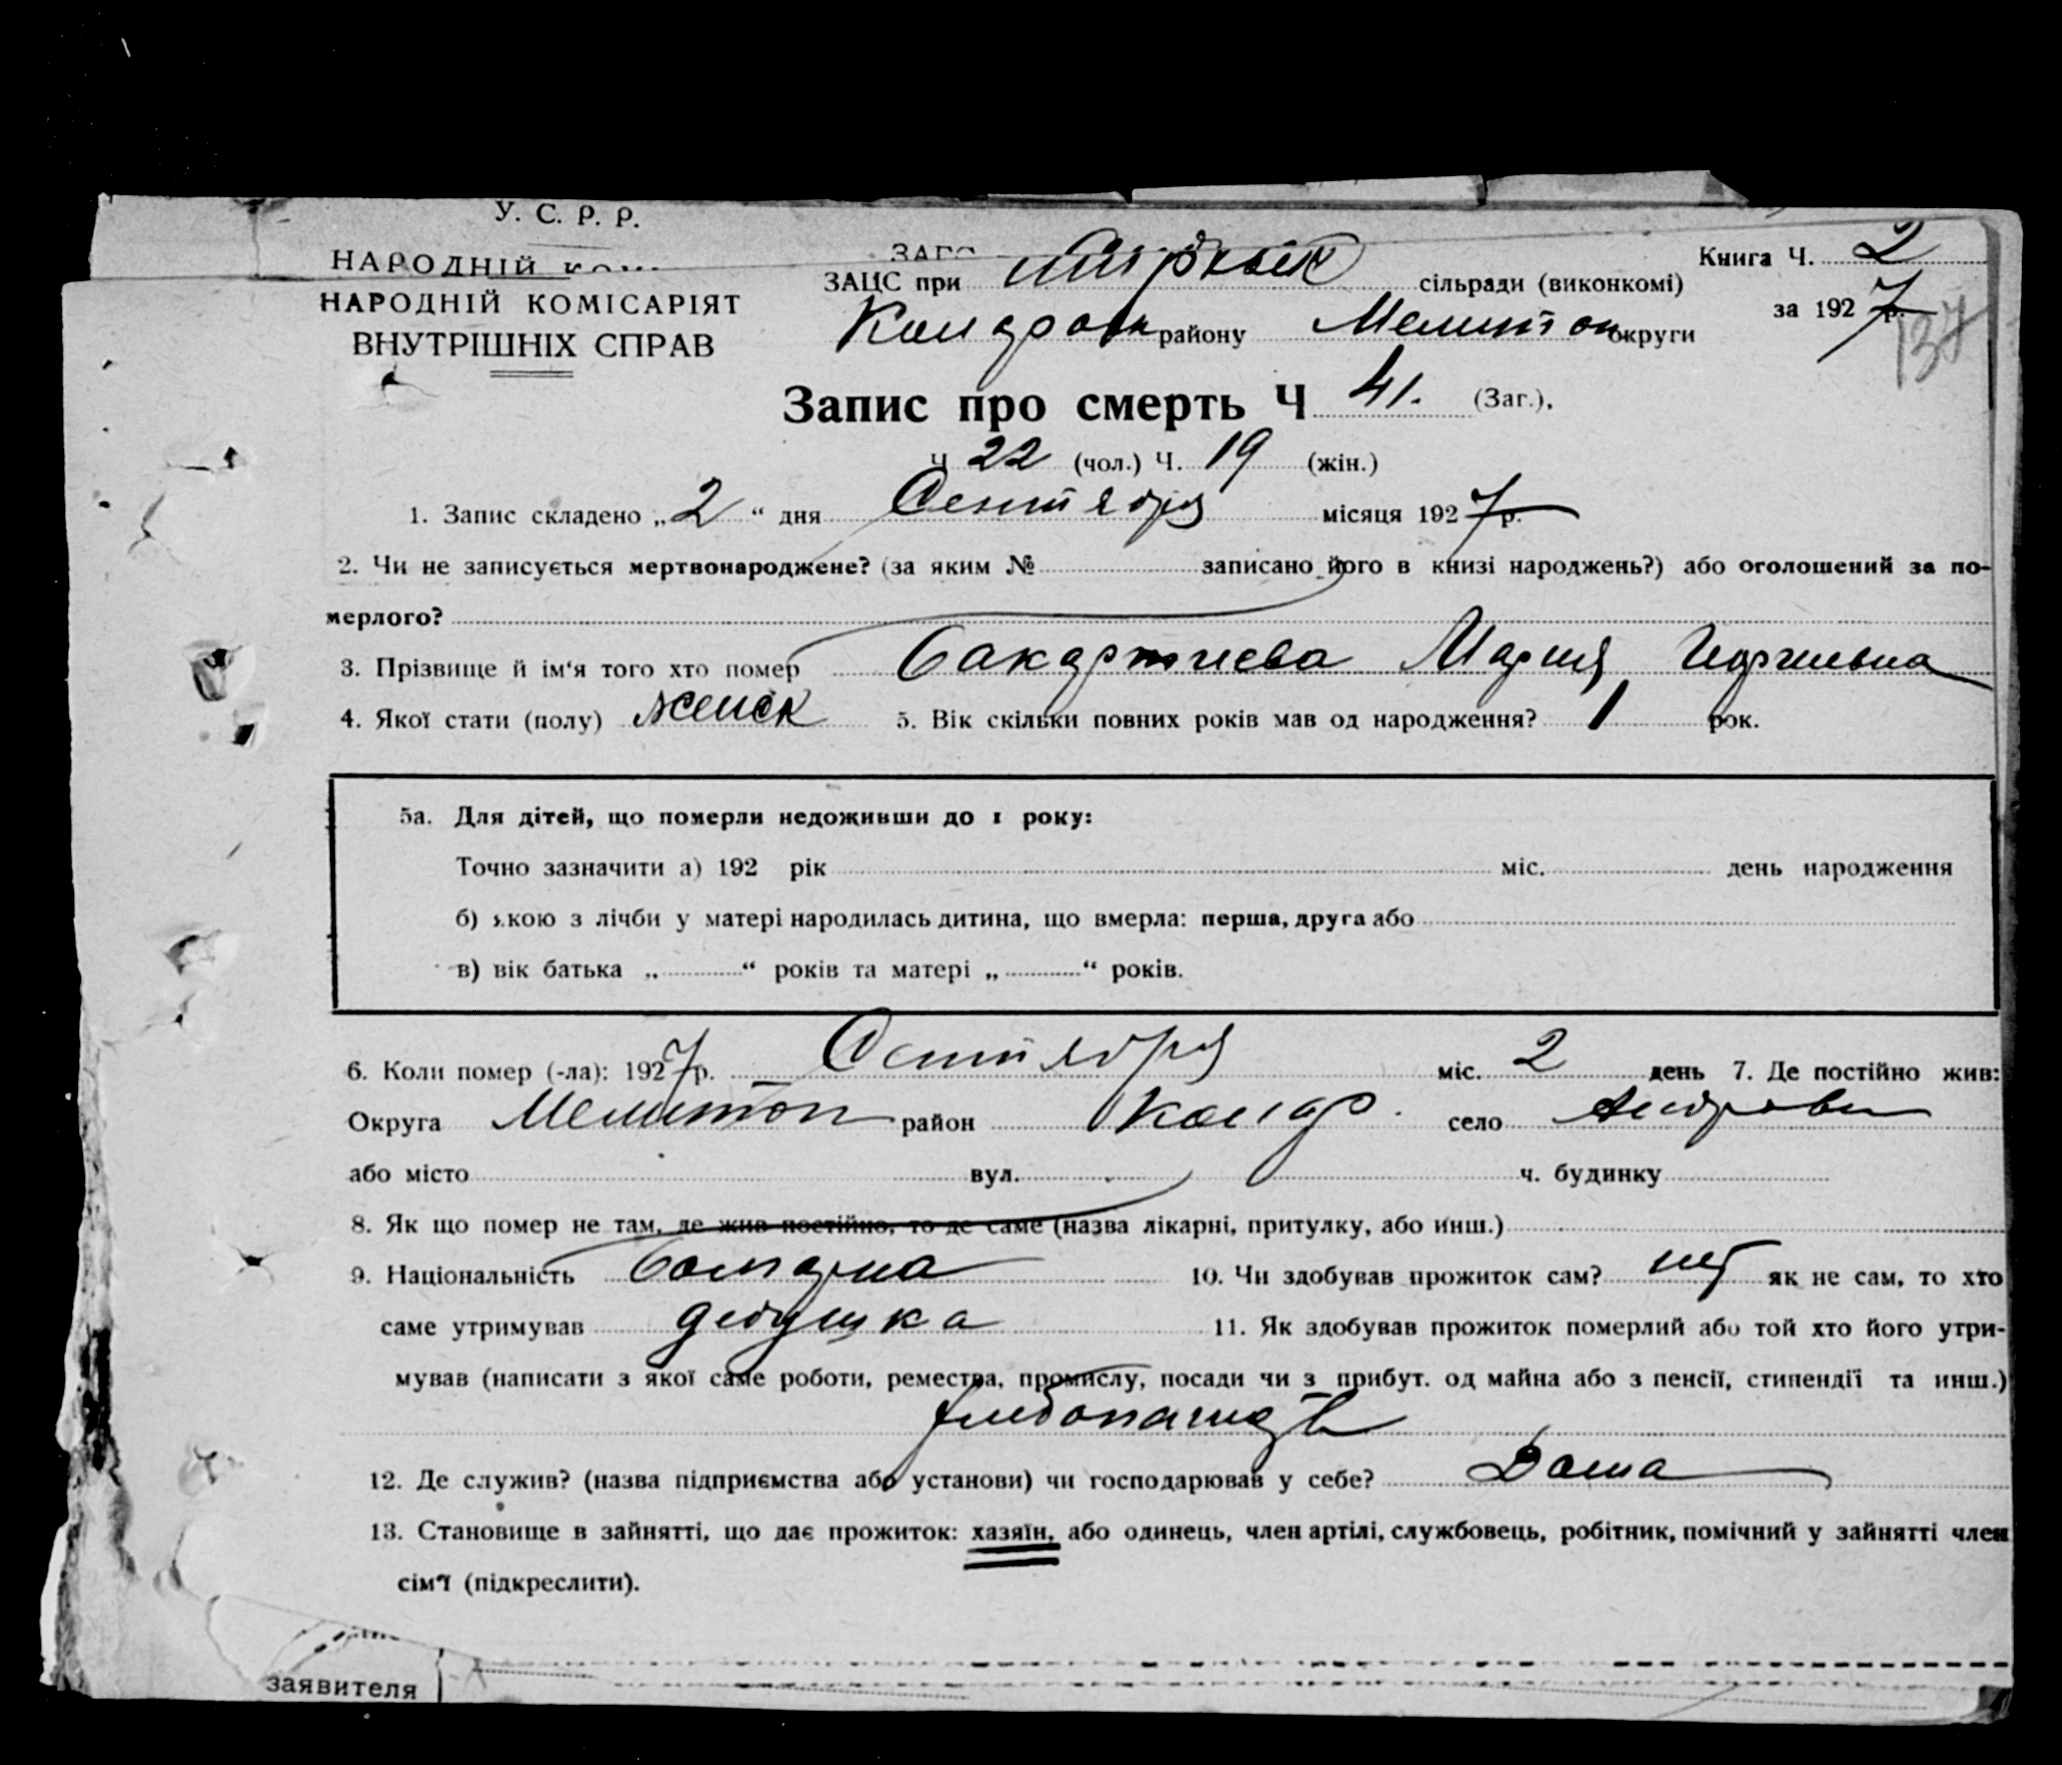 У. С. Р. Р.
НАРОДНІЙ
НАРОДНІЙ КОМІСАРІЯТ
ВНУТРІШНІХ СПРАВ
ЗАЦС при сільради (виконкомі)
району Мелитоп округи
Книга Ч. 2
за 1927 р.
137
Запис про смерть Ч 41. (Заг.),
Ч 22 (чол.) Ч. 19 (жін.)
1. Запис складено „2“ дня Сентября місяця 1927 р.
2. Чи не записується мертвонароджене? (за яким № записано його в книзі народжень?) або оголошений за по-
мерлого?
3. Прізвище й ім‘я того хто помер Мария
4. Якої стати (полу) женск 5. Вік скільки повних років мав од народження? 1 рок.
5а. Для дітей, що померли недоживши до 1 року:
Точно зазначити а) 192 рік міс. день народження
б) якою з лічби у матері народилась дитина, що вмерла: перша, друга або
в) вік батька „ “ років та матері „ “ років.
6. Коли помер (-ла): 1927 р. Сентября міс. 2 день 7. Де постійно жив:
Округа Мелитоп район село
або місто вул. ч. будинку
8. Як що помер не там, де жив постійно, то де саме (назва лікарні, притулку, або инш.)
9. Національність болгарка 10. Чи здобував прожиток сам? нет як не сам, то хто
саме утримував дедушка 11. Як здобував прожиток померлий або той хто його утри-
мував (написати з якої саме роботи, ремества, промислу, посади чи з прибут. од майна або з пенсії, стипендії та инш.)
хлебопашеств
12. Де служив? (назва підприємства або установи) чи господарював у себе? Дома
13. Становище в зайнятті, що дає прожиток: хазяїн, або одинець, член артілі, службовець, робітник, помічний у зайнятті член
сім‘ї (підкреслити).
заявителя